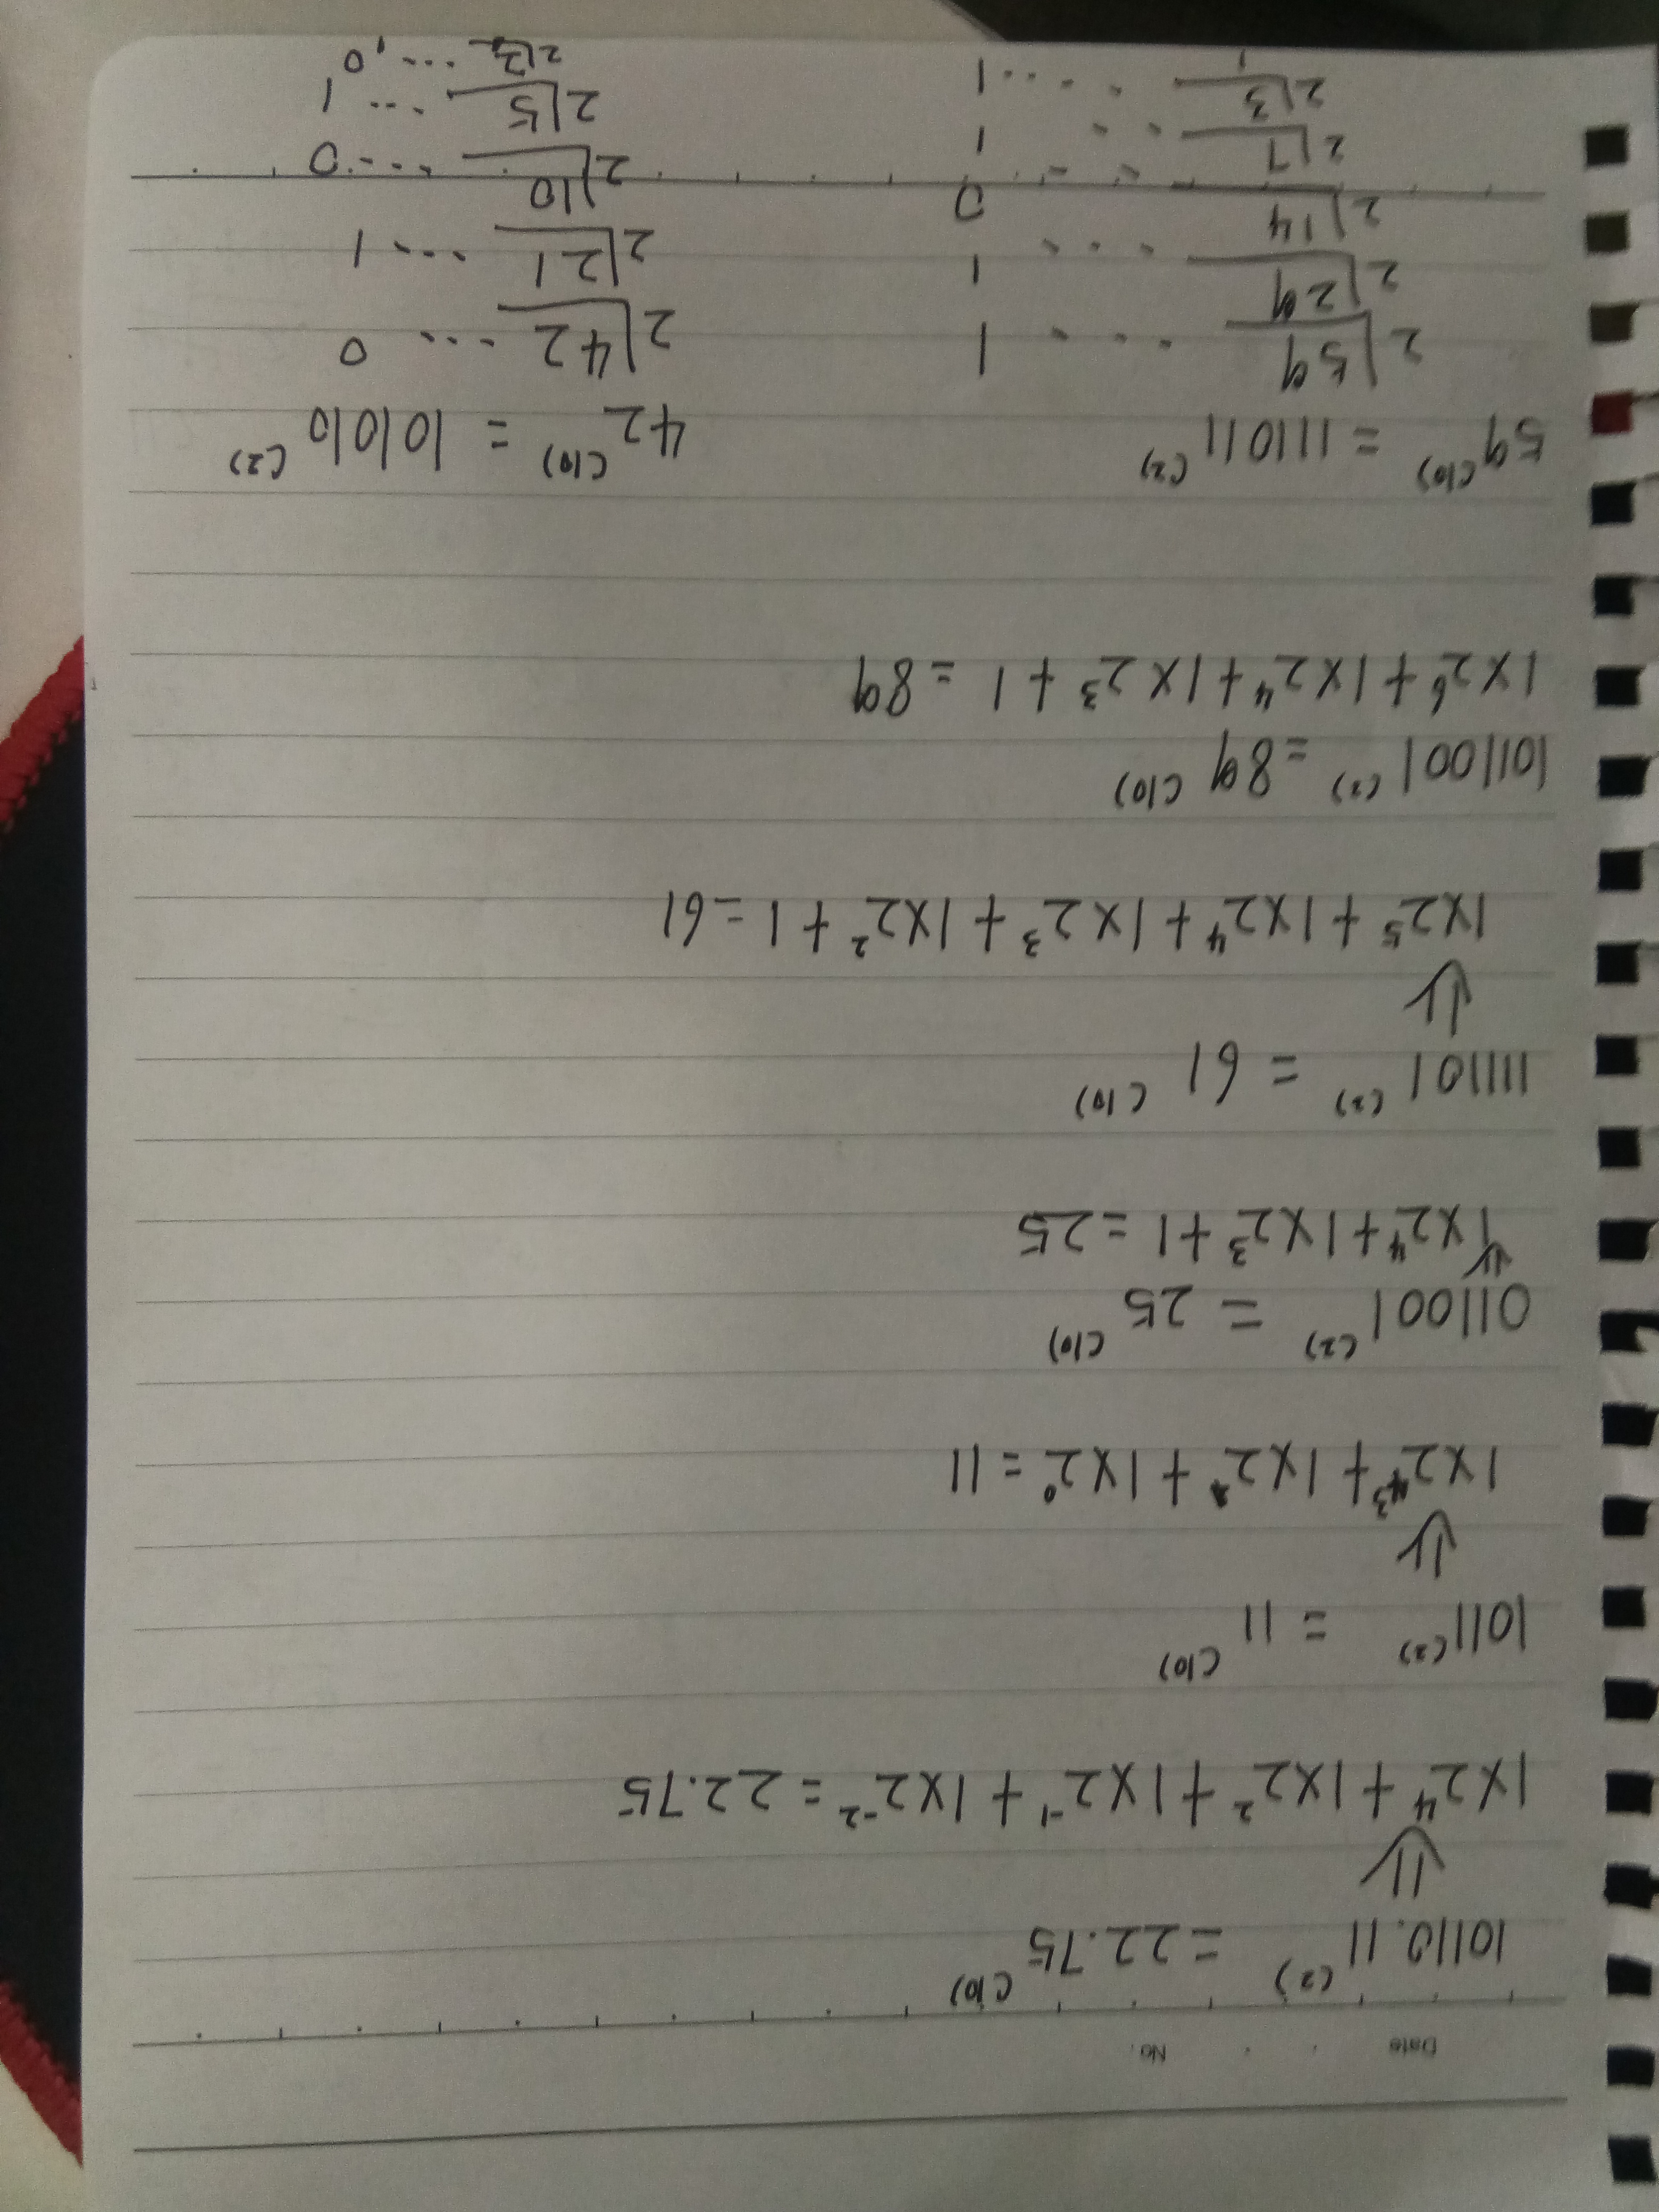 Date No.
10110.11(2) =22.75(10)
⇓
1×2⁴+1×2²+1×2⁻¹+1×2⁻²=22.75
1011(2) = 11(10)
⇓
1×2³+1×2 +1×2⁰=11
011001(2) = 25(10)
⇓
1×2⁴+1×2³+1=25
111101(2) = 61(10)
⇓
1×2⁵+1×2⁴+1×2³+1×2²+1=61
1011001(2) =89(10)
1×2⁶+1×2⁴+1×2³+1=89
59(10) = 111011(2) 42(10) = 101010(2)
2|59 ... 1 2|42 ... 0
2|29 ... 1 2|21 ... 1
2|14 ... 0 2|10 ... 0
2|7 ... 1 2|5 ... 1
2|3 ... 1 2|2 ... 0
1 1